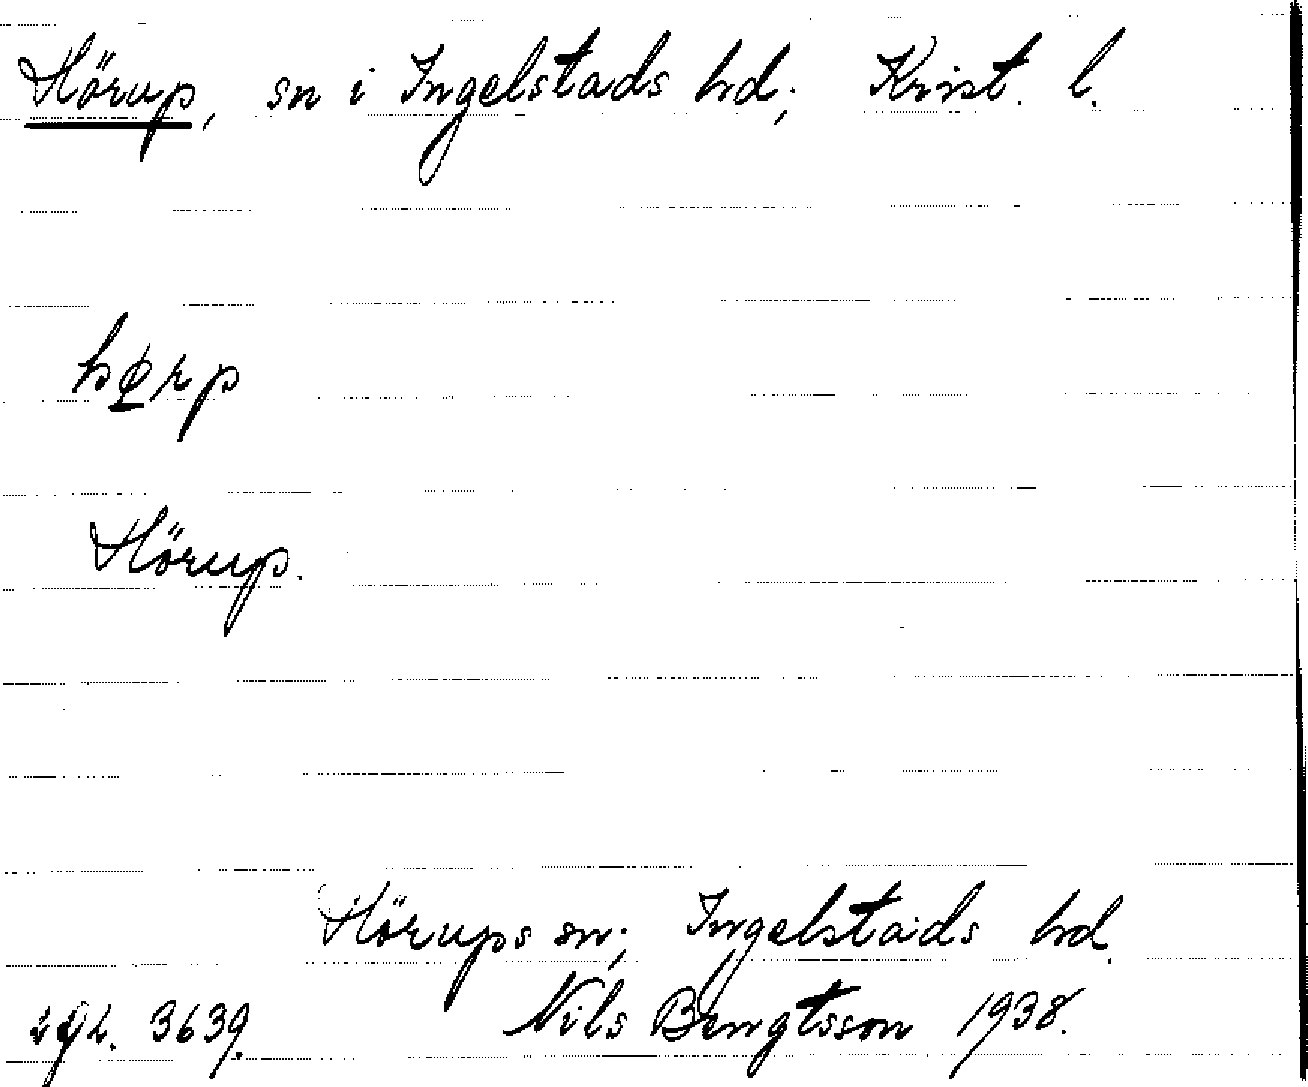 Hörup, sn i Ingelstads hd; Krist. l.
hørp
Hörup.
Hörups sn; Ingelstads hd.
3639. Nils Bengtsson 1938.